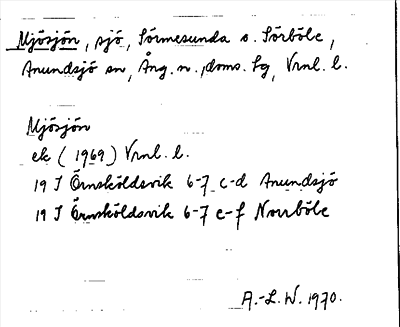 Mjösjön, sjö, Sörmesunda o. Sörböle,
Anundsjö sn, Ång. n., doms. sg, Vrnl. l.
Mjösjön
ek (1969) Vrnl. l.
19 J Örnsköldsvik 6-7 c-d Anundsjö
19 J Örnsköldsvik 6-7 e-f Norrböle
A.-L. W. 1970.